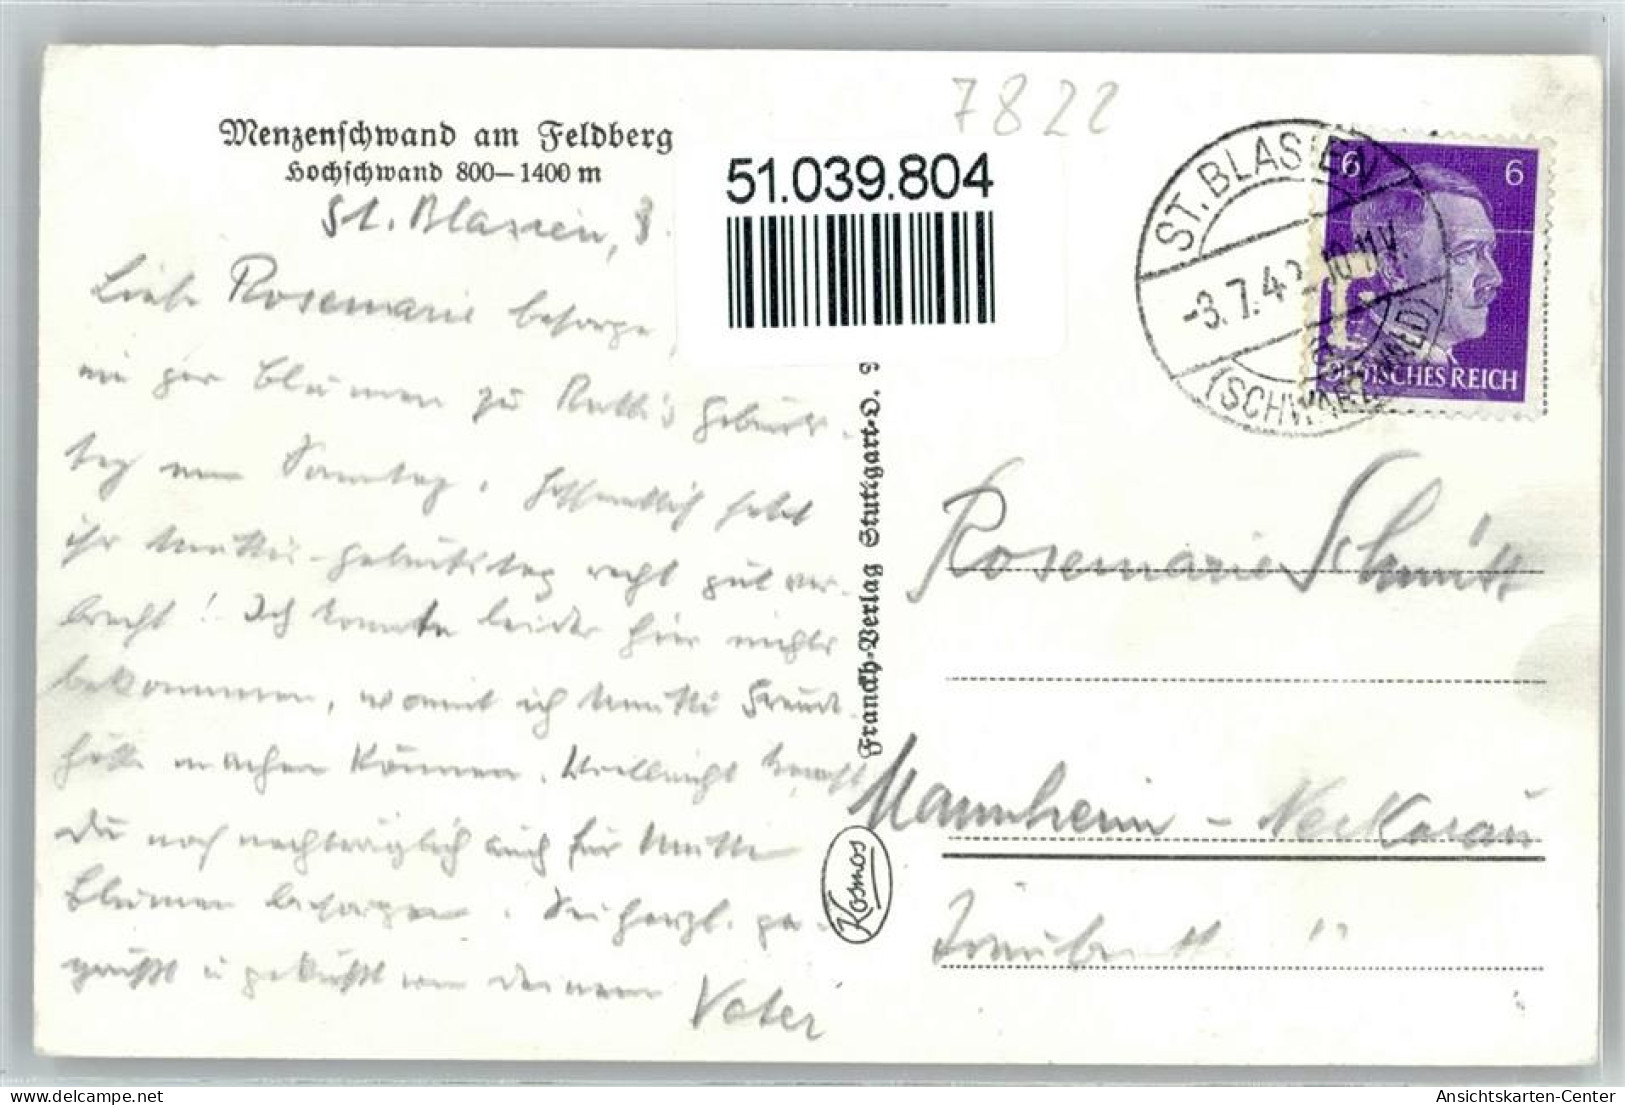 Menzenschwand am Feldberg
Hochschwand 800–1400 m
7822
51.039.804
ST. BLASIEN
-3.7.42 10-11 V.
(SCHWARZWALD)
6 6
DEUTSCHES REICH
St. Blasien, 3.
Liebe Rosemarie besorge
mir gar Blumen zu Mutti's Geburts-
tag am Sonntag. Hoffentlich habt
ihr Mutti-Geburtstag recht gut ver-
bracht! Ich konnte leider hier nichts
bekommen, womit ich Mutti Freude
hätte machen können. Vielleicht kannst
Du noch nachträglich auch für Mutti
Blumen besorgen. Sei herzl. ge-
grüßt u geküßt von Deinem Vater
Franckh-Verlag Stuttgart-O. 9
Kosmos
Rosemarie Schmitt
Mannheim - Neckarau
Ansichtskarten-Center